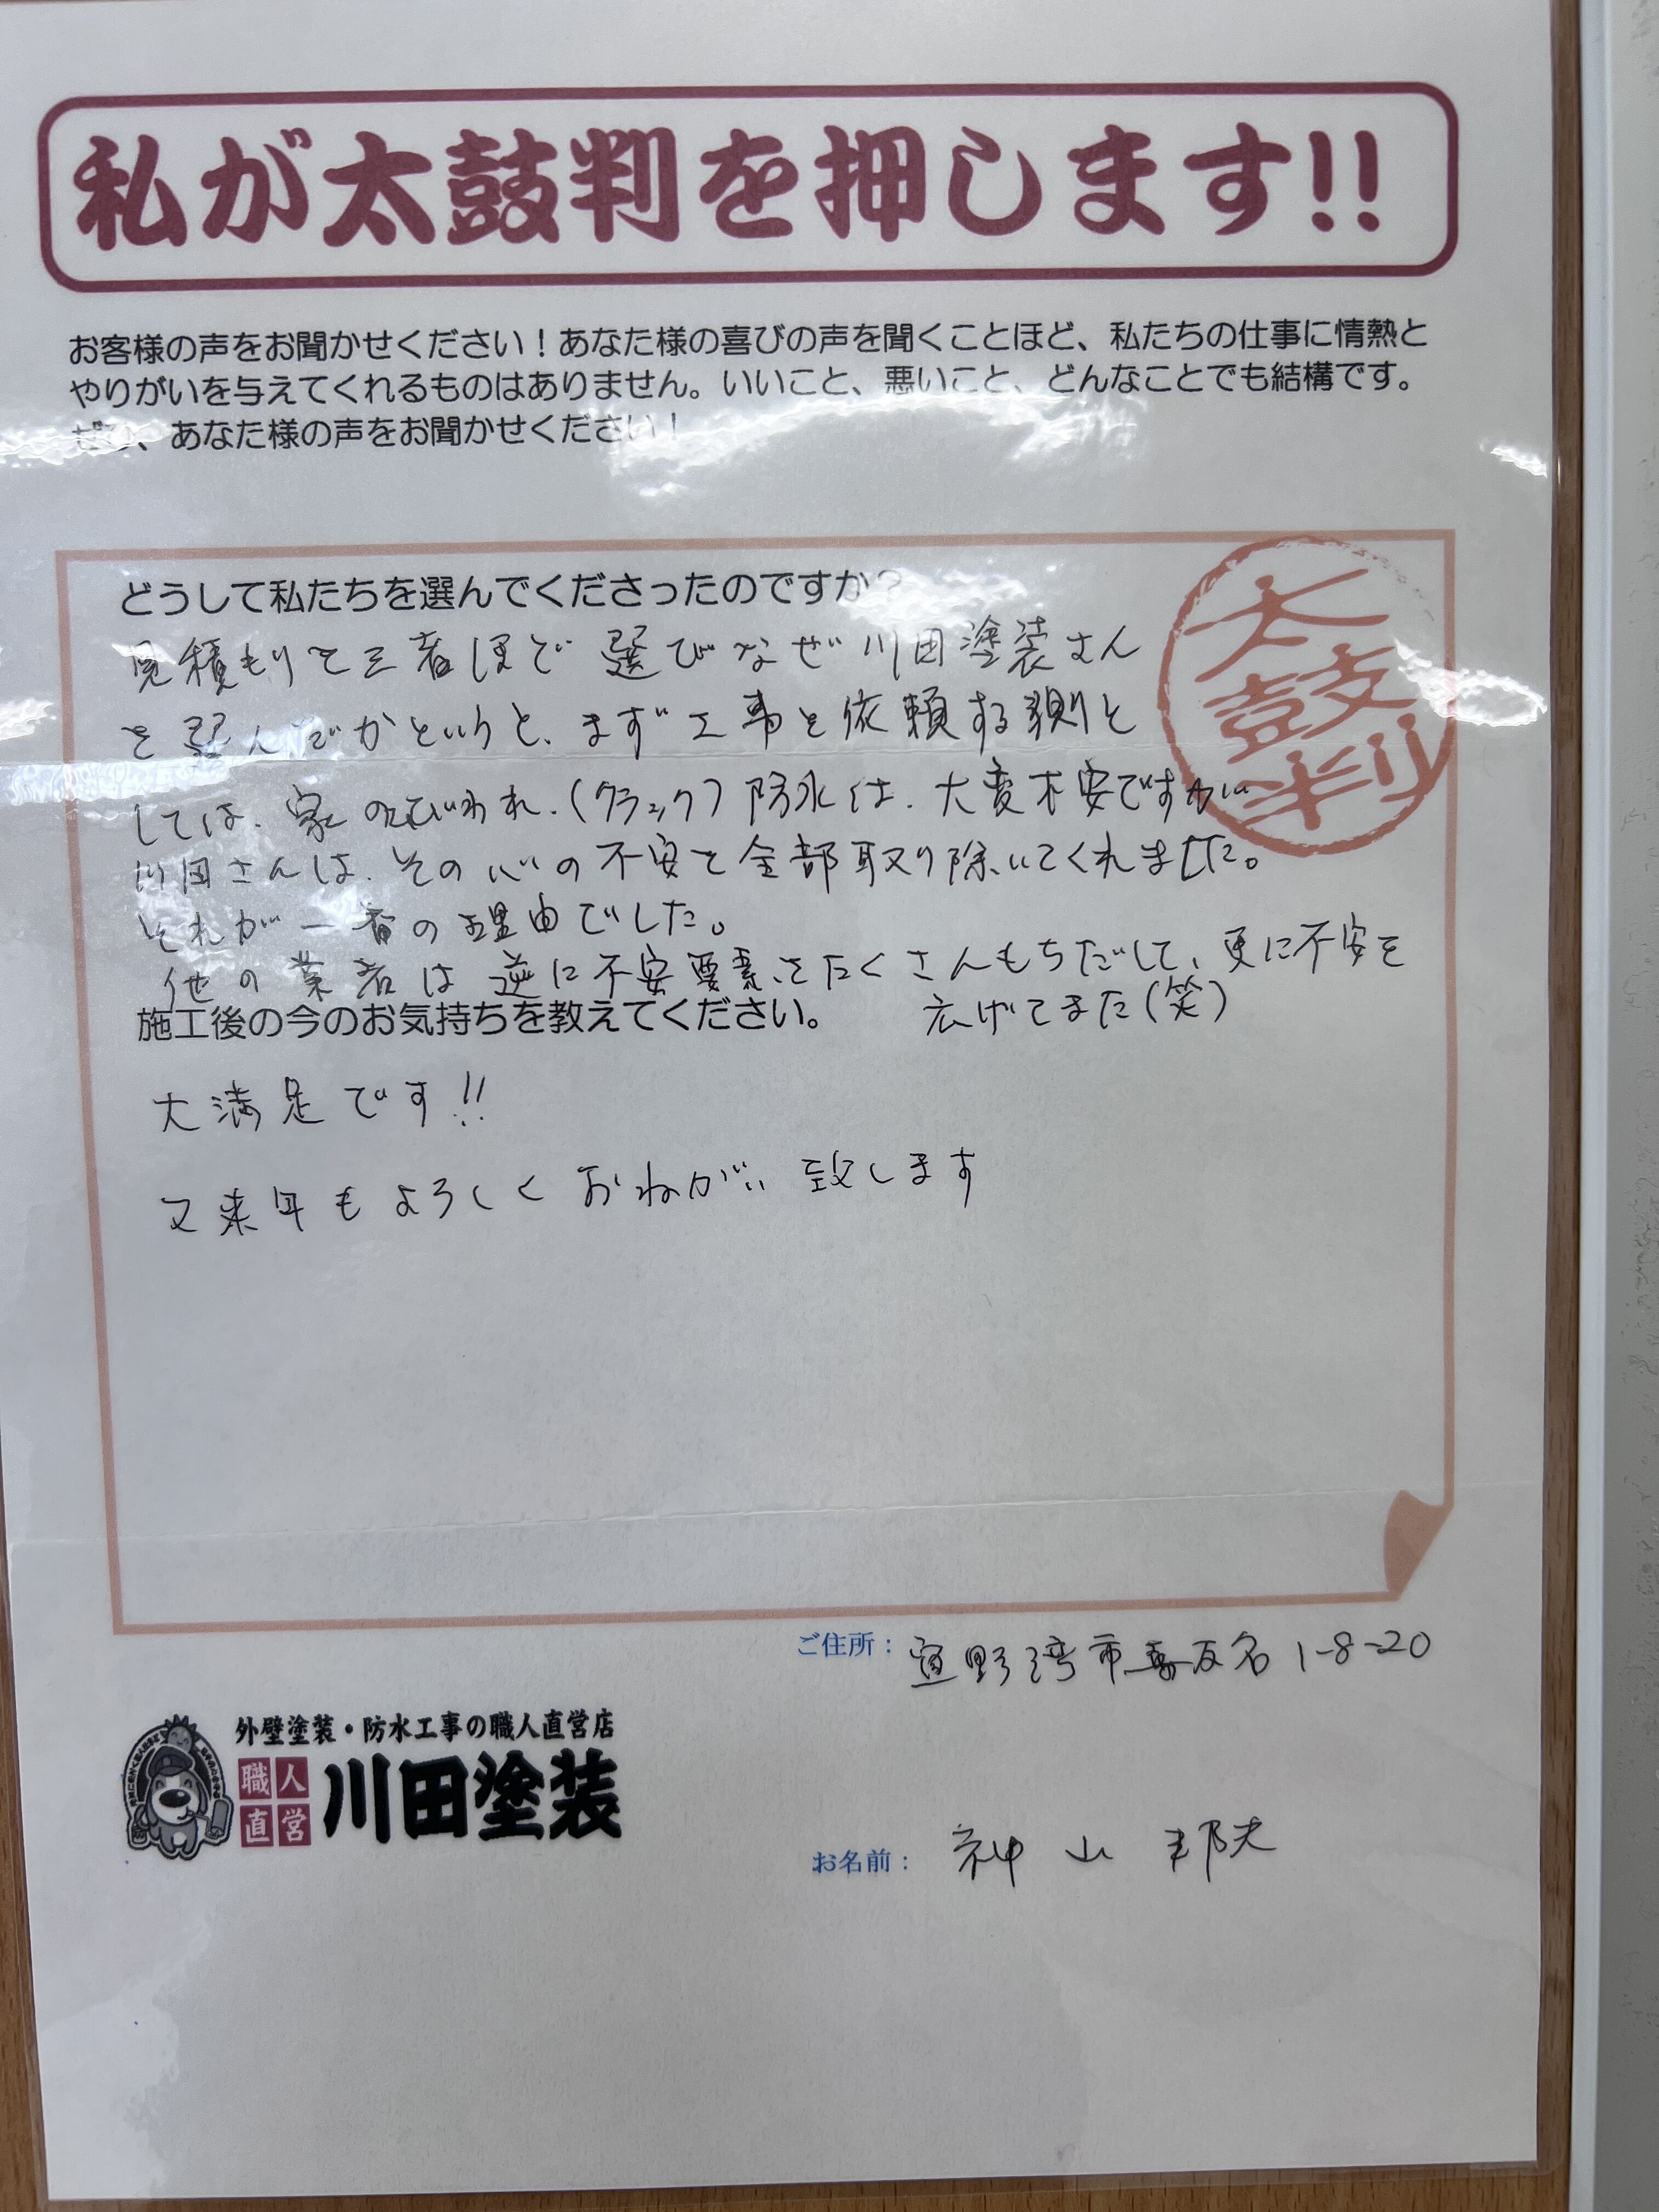 私が太鼓判を押します!!
お客様の声をお聞かせください！あなた様の喜びの声を聞くことほど、私たちの仕事に情熱と
やりがいを与えてくれるものはありません。いいこと、悪いこと、どんなことでも結構です。
ぜひ、あなた様の声をお聞かせください！
太鼓判
どうして私たちを選んでくださったのですか？
見積もりを三者ほど選びなぜ川田塗装さん
を選んだかというと、まず工事を依頼する側と
しては、家のひびわれ、(クラック)防水は、大変不安ですが
川田さんは、その心の不安を全部取り除いてくれました。
それが一番の理由でした。
他の業者は逆に不安要素をたくさんもちだして、更に不安を
広げてました(笑)
施工後の今のお気持ちを教えてください。
大満足です!!
又来年もよろしくおねがい致します
ご住所： 宜野湾市喜友名1-8-20
外壁塗装・防水工事の職人直営店
職人直営 川田塗装
お名前： 神山 邦夫